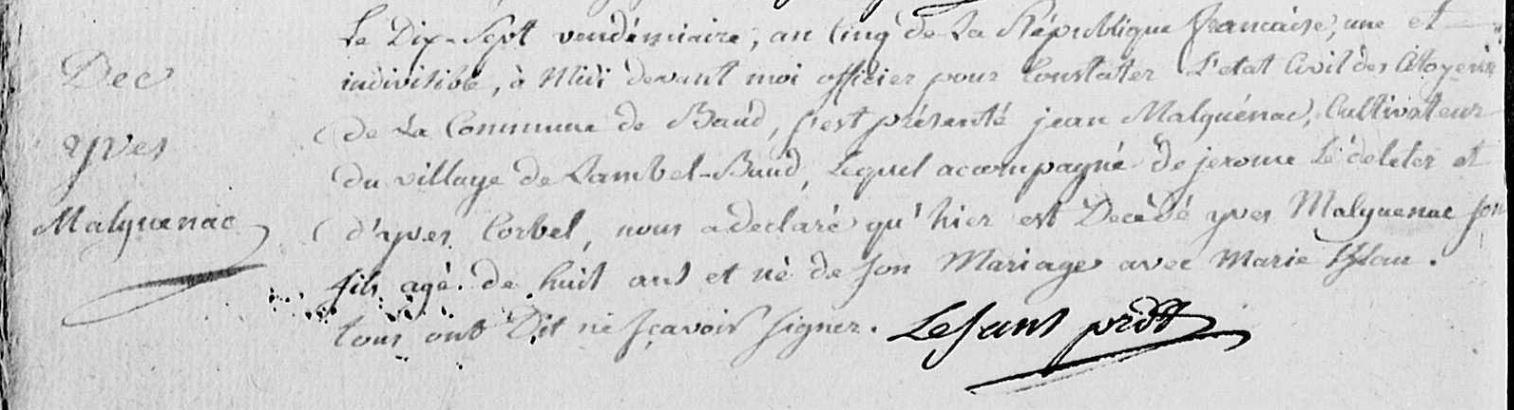 Dec
yves
Malguenac
Le Dix-Sept vendémiaire, an Cinq de La République francaise, une et
indivisible, à Midi devant moi officier pour Constater L'etat Civil des Citoyens
de La Commune de Baud, s'est présenté jean Malguénac, Cultivateur
du village de Lambel-Baud, Lequel accompagné de jerome Le deleter et
d'yves Corbel, nous a declaré qu'hier est Decédé yves Malguenac son
fils agé de huit ans et né de son Mariage avec Marie
tous ont Dit ne sçavoir signer. Le Sant prdt